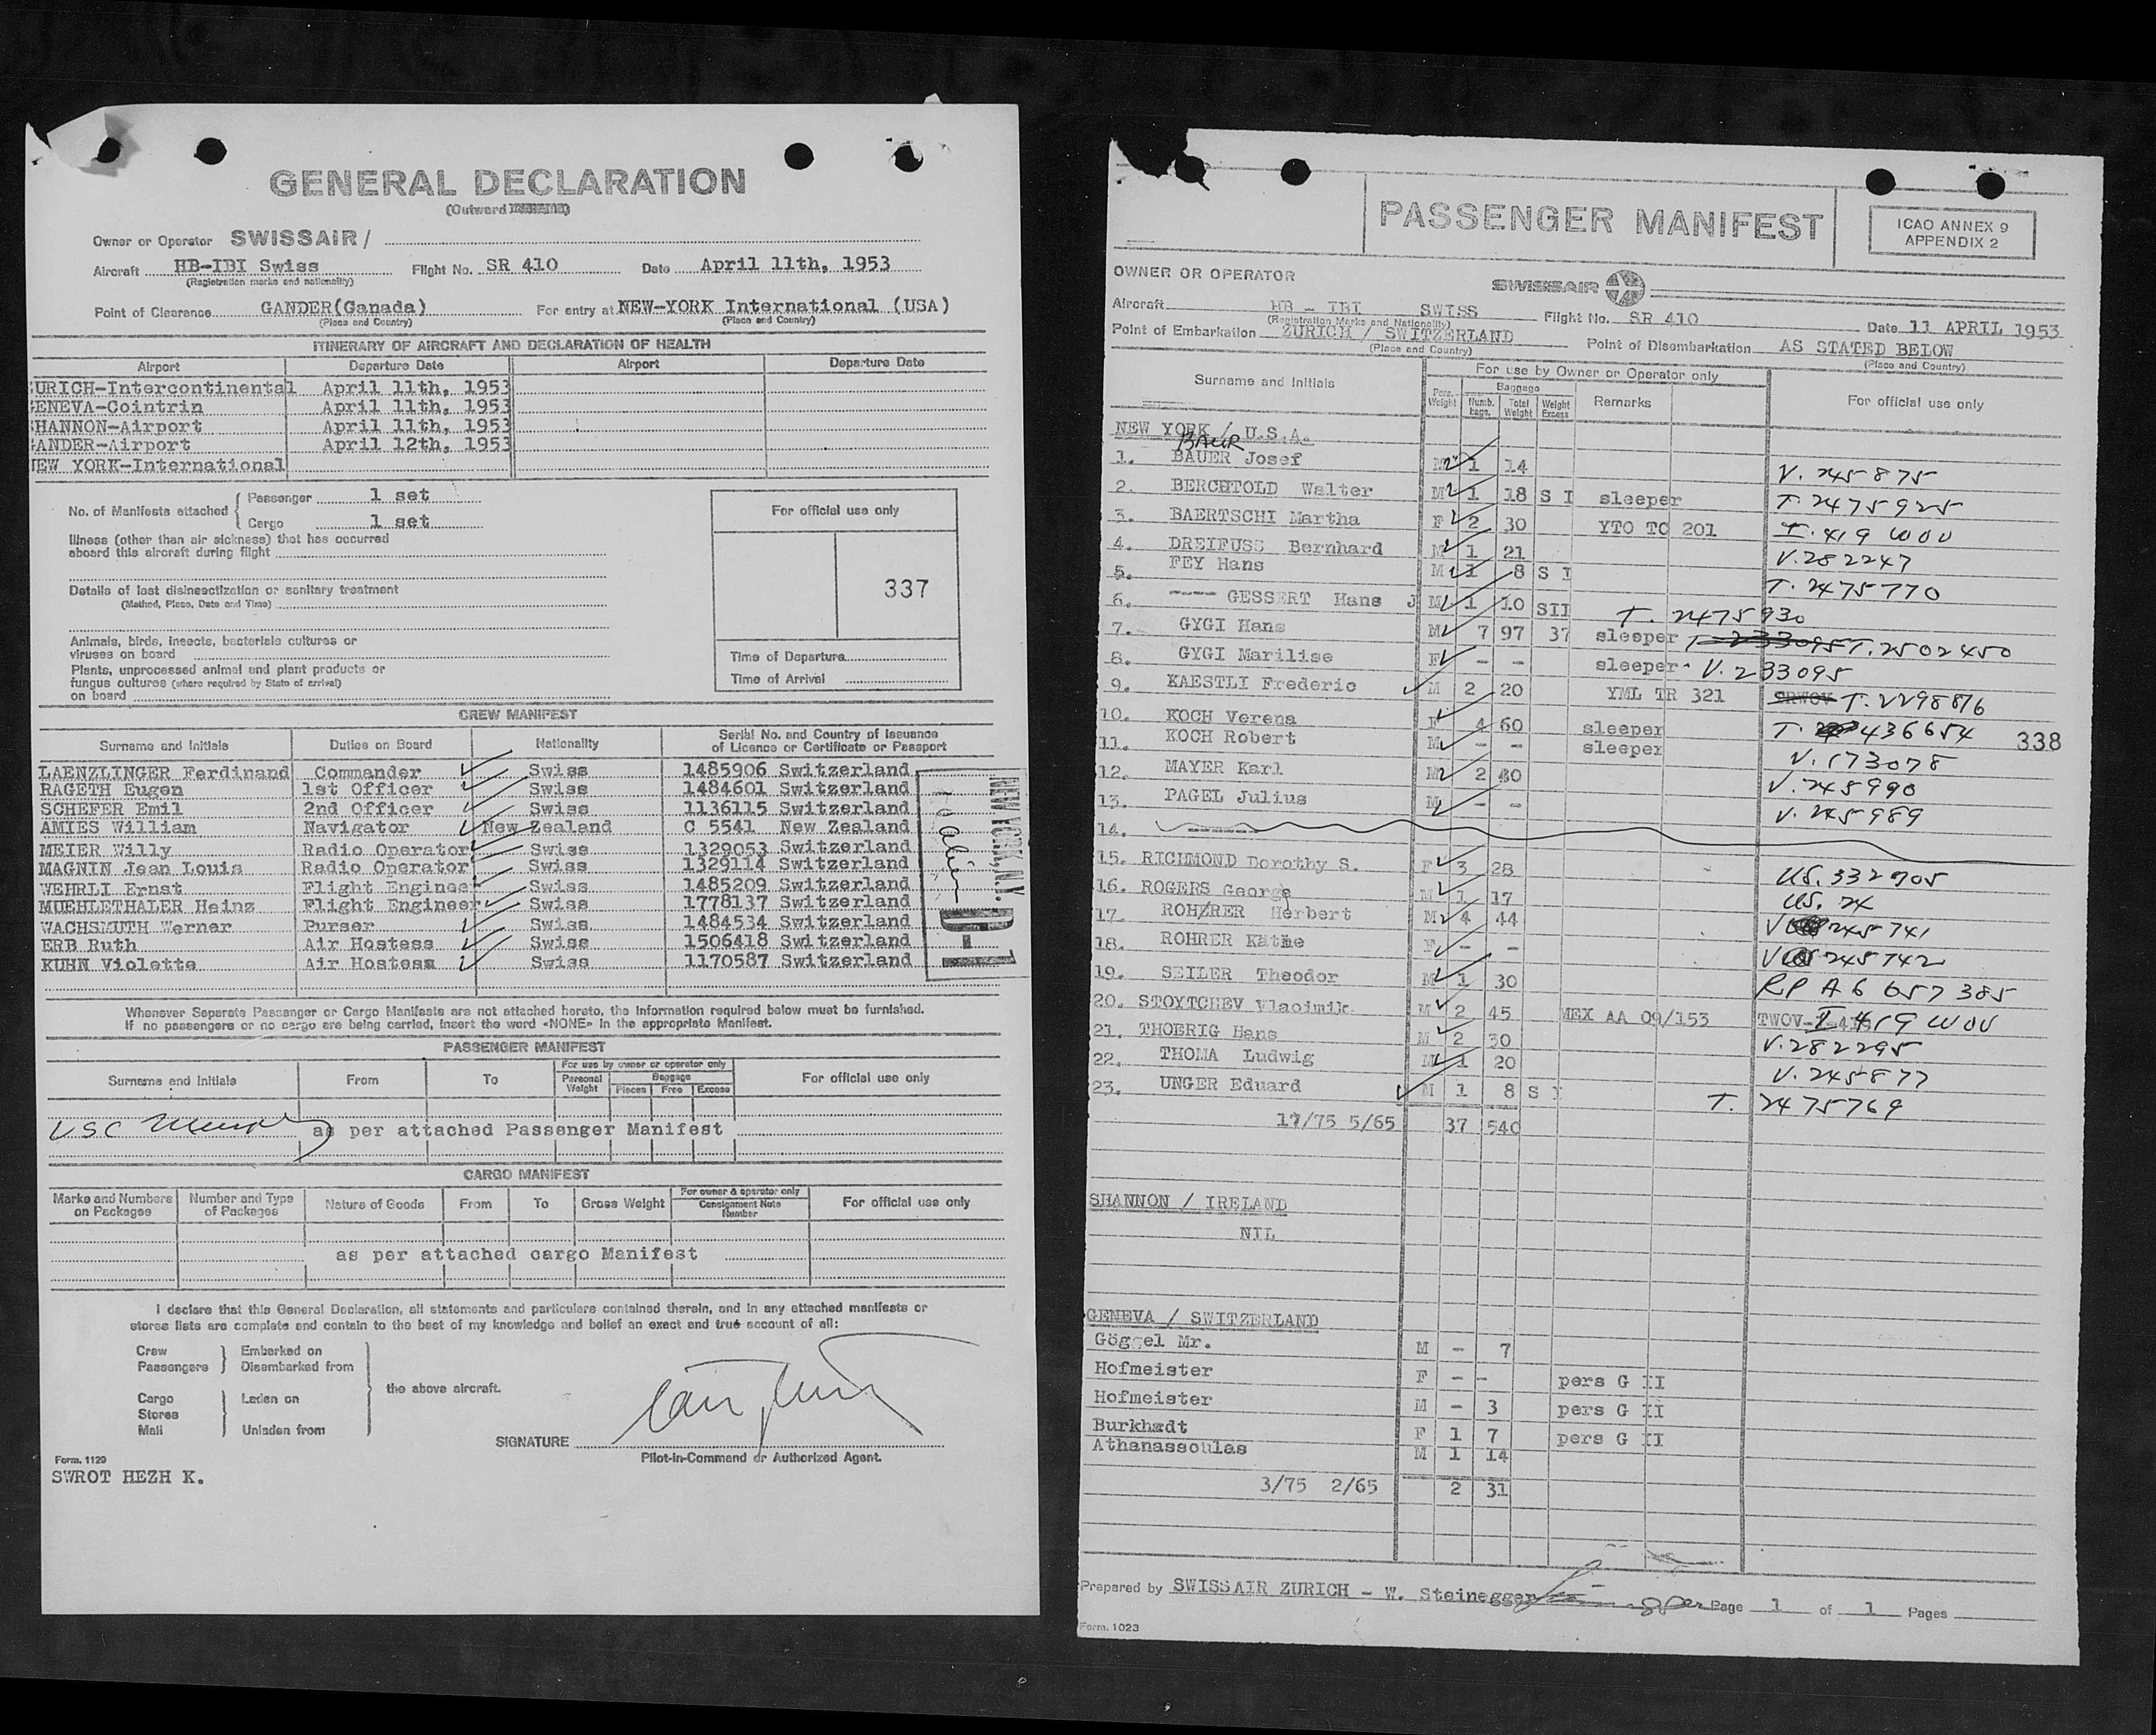 GENERAL DECLARATION
(Outward
Owner or Operator SWISSAIR /
Aircraft HB-IBI Swiss Flight No. SR 410 Date April 11th, 1953
(Registration marks and nationality)
Point of Clearance GANDER(Canada) For entry at NEW-YORK International (USA)
(Place and Country) (Place and Country)
ITINERARY OF AIRCRAFT AND DECLARATION OF HEALTH
Airport Departure Date Airport Departure Date
URICH-Intercontinental April 11th, 1953
GENEVA-Cointrin April 11th, 1953
SHANNON-Airport April 11th, 1953
GANDER-Airport April 12th, 1953
NEW YORK-International
No. of Manifests attached { Passenger 1 set
Cargo 1 set
For official use only
Illness (other than air sickness) that has occurred
aboard this aircraft during flight
337
Details of last disinsectization or sanitary treatment
(Method, Place, Date and Time)
Animals, birds, insects, bacterials cultures or
viruses on board
Time of Departure
Plants, unprocessed animal and plant products or
fungus cultures (where required by State of arrival)
on board
Time of Arrival
CREW MANIFEST
Surname and Initials Duties on Board Nationality Serial No. and Country of Issuance
of Licence or Certificate or Passport
LAENZLINGER Ferdinand Commander Swiss 1485906 Switzerland
RAGETH Eugen 1st Officer Swiss 1484601 Switzerland
SCHEFER Emil 2nd Officer Swiss 1136115 Switzerland
AMIES William Navigator New Zealand C 5541 New Zealand
MEIER Willy Radio Operator Swiss 1329053 Switzerland
MAGNIN Jean Louis Radio Operator Swiss 1329114 Switzerland
WEHRLI Ernst Flight Engineer Swiss 1485209 Switzerland
MUEHLETHALER Heinz Flight Engineer Swiss 1778137 Switzerland
WACHSMUTH Werner Purser Swiss 1484534 Switzerland
ERB Ruth Air Hostess Swiss 1506418 Switzerland
KUHN Violette Air Hostess Swiss 1170587 Switzerland
NEW YORK, N.Y.
D-1
Whenever Separate Passenger or Cargo Manifests are not attached hereto, the information required below must be furnished.
If no passengers or no cargo are being carried, insert the word «NONE» in the appropriate Manifest.
PASSENGER MANIFEST
Surname and Initials From To For use by owner or operator only For official use only
Personal Weight Baggage
Pieces Free Excess
USC
as per attached Passenger Manifest
CARGO MANIFEST
Marks and Numbers on Packages Number and Type of Packages Nature of Goods From To Gross Weight For owner & operator only For official use only
Consignment Note Number
as per attached cargo Manifest
I declare that this General Declaration, all statements and particulars contained therein, and in any attached manifests or
stores lists are complete and contain to the best of my knowledge and belief an exact and true account of all:
Crew } Embarked on
Passengers } Disembarked from
the above aircraft.
Cargo } Laden on
Stores
Mail } Unladen from
SIGNATURE
Pilot-in-Command or Authorized Agent.
Form. 1129
SWROT HEZH K.
PASSENGER MANIFEST
ICAO ANNEX 9
APPENDIX 2
OWNER OR OPERATOR SWISSAIR
Aircraft HB - IBI SWISS Flight No. SR 410 Date 11 APRIL 1953
(Registration Marks and Nationality)
Point of Embarkation ZURICH / SWITZERLAND Point of Disembarkation AS STATED BELOW
(Place and Country) (Place and Country)
Surname and Initials For use by Owner or Operator only For official use only
Pers. Weight Baggage Remarks
Numb. bags. Total Weight Weight Excess
NEW YORK / U.S.A.
BAUR
1. BAUER Josef M 1 14 V. 245875
2. BERCHTOLD Walter M 1 18 S I sleeper T. 2475925
3. BAERTSCHI Martha F 2 30 YTO TC 201 I. 419 WOV
4. DREIFUSS Bernhard M 1 21 V. 282247
5. FEY Hans M 1 8 S I T. 2475770
6. ---- GESSERT Hans J M 1 10 SII T. 2475930
7. GYGI Hans M 7 97 37 sleeper T 233095 T. 2502450
8. GYGI Marilise F - - sleeper V. 233095
9. KAESTLI Frederic M 2 20 YML TR 321 T. 2298816
10. KOCH Verena F 4 60 sleeper T. 436654
338
11. KOCH Robert M - - sleeper V. 173078
12. MAYER Karl M 2 30 V. 245990
13. PAGEL Julius M - - V. 245989
14.
15. RICHMOND Dorothy S. F 3 28 US. 332905
16. ROGERS George M 1 17 US. 24
17. ROHRER Herbert M 4 44 V 245741
18. ROHRER Käthe F - - V 245742
19. SEILER Theodor M 1 30 RP A6 657385
20. STOYTCHEV Vladimik M 2 45 MEX AA 09/153 TWOV I 419 WOV
21. THOERIG Hans M 2 30 V. 282295
22. THOMA Ludwig M 1 20 V. 245877
23. UNGER Eduard M 1 8 S I T. 2475769
17/75 5/65 37 540
SHANNON / IRELAND
NIL
GENEVA / SWITZERLAND
Göggel Mr. M - 7
Hofmeister F - - pers G II
Hofmeister M - 3 pers G II
Burkhadt F 1 7 pers G II
Athanassoulas M 1 14
3/75 2/65 2 31
Prepared by SWISSAIR ZURICH - W. Steinegger Page 1 of 1 Pages
Form. 1023